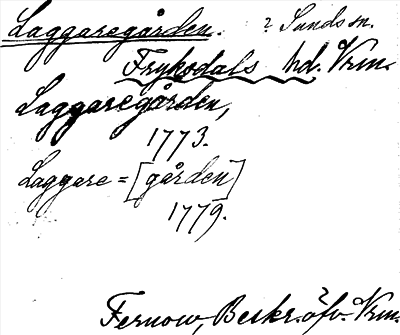 Laggaregården. ? Sunds sn.
Fryksdals hd. Vrm.
Laggaregården,
1773.
Laggare = [gården]
1779.
Fernow, Beskr. öfv. Vrm.